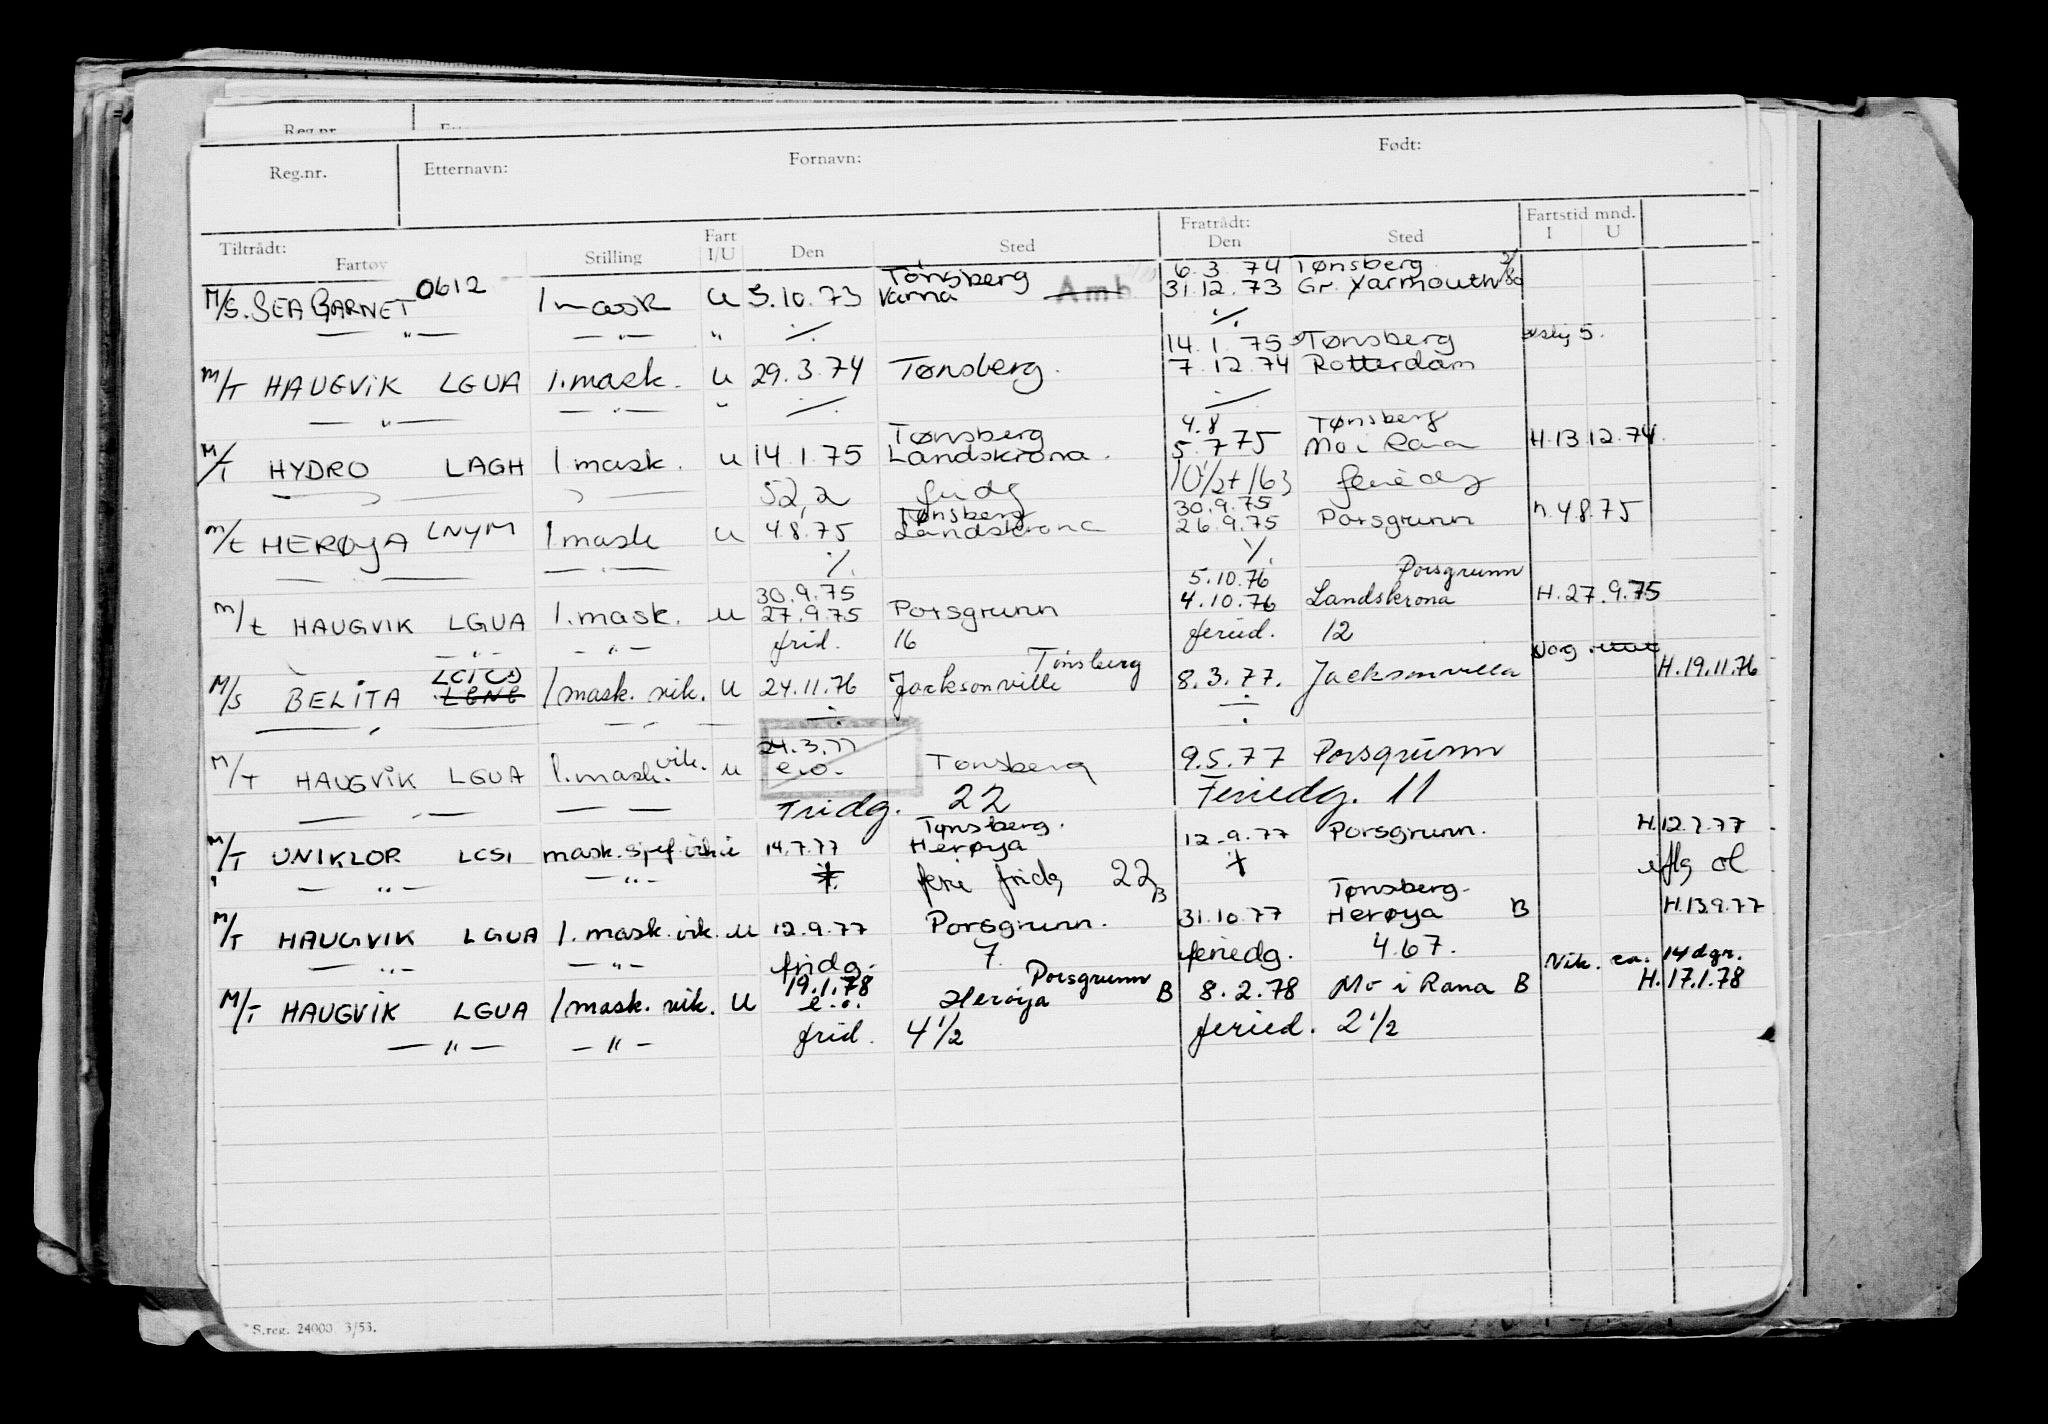 Reg.nr.
Reg.nr. Etternavn: Fornavn: Født:
Tiltrådt: Fratrådt: Fartstid mnd.
Fartøy Stilling Fart I/U Den Sted Den Sted I U
Tønsberg 6.3.74 Tønsberg
M/S. SEA GARNET 0612 1 mask U 5.10.73 Varna Amb. 31.12.73 Gr. Yarmouth
— " — — " — " ./. ./.
14.1.75 Tønsberg 5.
M/T HAUGVIK LGUA 1. mask. U 29.3.74 Tønsberg. 7.12.74 Rotterdam
— " — — " — " ./. ./.
Tønsberg 4.8 Tønsberg
M/T HYDRO LAGH 1 mask. U 14.1.75 Landskrona. 5.7.75 Mo i Rana H.13.12.74.
52,2 fridg 10 1/2 + 163 feriedg
Tønsberg 30.9.75
M/t HERØYA LNYM 1 mask U 4.8.75 Landskrona 26.9.75 Porsgrunn h.4.8.75
— — — " — ./. ./.
30.9.75 5.10.76 Porsgrunn
M/t HAUGVIK LGUA 1. mask. U 27.9.75 Porsgrunn 4.10.76 Landskrona H.27.9.75
— " — — " — frid. 16 feried. 12
LCIO Tønsberg
M/S BELITA 1 mask. vik. U 24.11.76 Jacksonville 8.3.77. Jacksonville H.19.11.76
— " — — " —
24.3.77
M/T HAUGVIK LGUA 1. mask. vik. U e.o. Tønsberg 9.5.77 Porsgrunn
— " — — — Fridg. 22 Feriedg. 11
Tønsberg.
M/T UNIKLOR LCSI mask. spes. vik U 14.7.77 Herøya 12.9.77 Porsgrunn. H.12.7.77
— " — — " — ferie fridg 22 B
Tønsberg.
M/T HAUGVIK LGUA 1. mask. vik. U 12.9.77 Porsgrunn. 31.10.77 Herøya B H.13.9.77
— " — — " — fridg. 7. feriedg. 4.67.
19.1.78 Porsgrunn Vik. ca. 14 dgr.
M/T HAUGVIK LGUA 1 mask. vik. U e.o. Herøya B 8.2.78 Mo i Rana B H.17.1.78
— " — — " — frid. 4 1/2 feried. 2 1/2
S.reg. 24000 3/53.